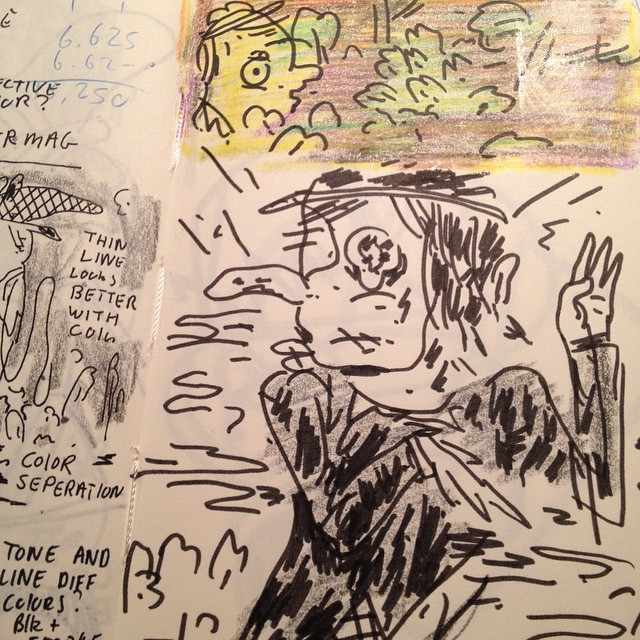 6.625
6.62
.250
ECTIVE
OR?
R MAG
THIN
LINE
LOOKS
BETTER
WITH
COLOR
COLOR
SEPERATION
TONE AND
LINE DIFF
COLORS.
BLK +